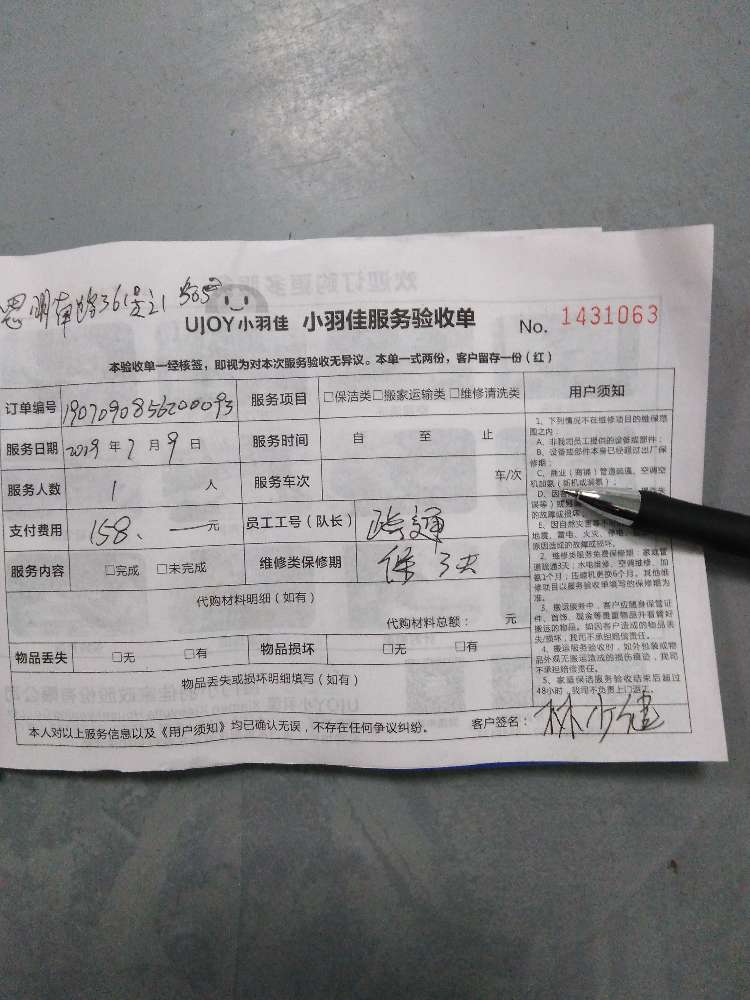 思明南路361号之1 505
UJOY小羽佳 小羽佳服务验收单 No. 1431063
本验收单一经核签，即视为对本次服务验收无异议。本单一式两份，客户留存一份（红）
订单编号 1907090856200093 服务项目 □保洁类□搬家运输类□维修清洗类 用户须知
服务日期 2019年7月9日 服务时间 自 至 止
服务人数 1 人 服务车次 车/次
支付费用 158.一元 员工工号（队长） 疏通
服务内容 □完成 □未完成 维修类保修期 保3天
代购材料明细（如有）
代购材料总额： 元
物品丢失 □无 □有 物品损坏 □无 □有
物品丢失或损坏明细填写（如有）
本人对以上服务信息以及《用户须知》均已确认无误，不存在任何争议纠纷。 客户签名：
1、下列情况不在维修项目的维保范
围之内：
A、非我司员工提供的设备或部件；
B、设备或部件本身已经超过出厂保
修期；
C、商业（商铺）管道疏通、空调空
机加氨（拆机或装氨）
D、因
误等）或
的故障或损坏
E、因自然灾害等不
地震、雷电、火灾、停电
原因造成的故障或损坏。
2、维修类服务免费保修期：家庭管
道疏通3天；水电维修、空调维修、加
氨1个月；压缩机更换6个月。其他维
修项目以服务验收单填写的保修期为
准。
3、搬运服务中，客户应随身保管证
件、首饰、现金等贵重物品并看管好
搬运的物品。如因客户造成的物品丢
失/损坏，我司不承担赔偿责任。
4、搬运服务验收时，如外包装或物
品外观无搬运造成的损伤痕迹，我司
不承担赔偿责任。
5、家庭保洁服务验收结束后超过
48小时，我司不负责上门返工。